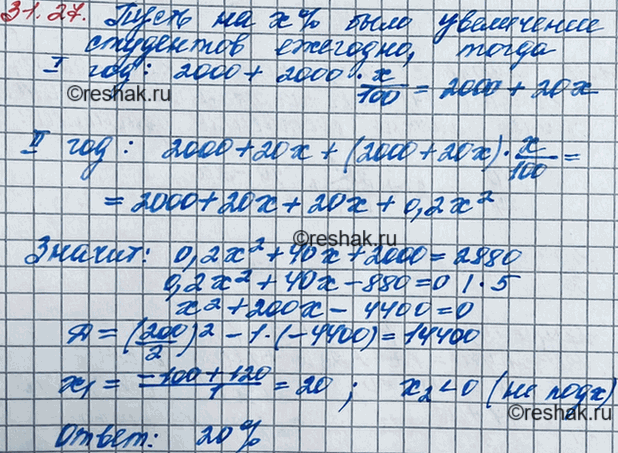 31.27. Пусть на x% было увеличение
студентов ежегодно, тогда
I год: 2000 + 2000 · x/100 = 2000 + 20x
©reshak.ru
II год: 2000 + 20x + (2000 + 20x) · x/100 =
= 2000 + 20x + 20x + 0,2x²
©reshak.ru
Значит: 0,2x² + 40x + 2000 = 2880
0,2x² + 40x - 880 = 0 | · 5
x² + 200x - 4400 = 0
Д = (200/2)² - 1 · (-4400) = 14400
x₁ = (-100 + 120)/1 = 20 ; x₂ < 0 (не подх)
©reshak.ru
Ответ: 20%